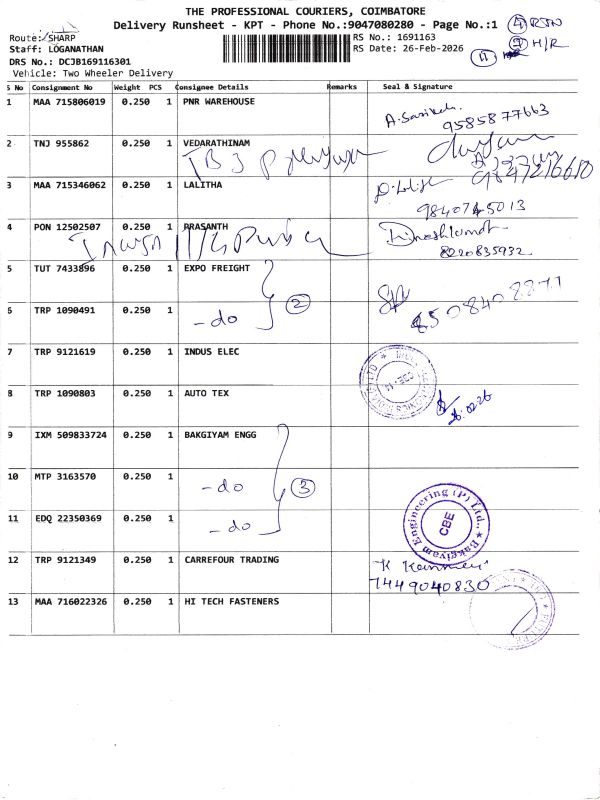 THE PROFESSIONAL COURIERS, COIMBATORE
Delivery Runsheet - KPT - Phone No.:9047080280 - Page No.:1
④ RTN
Route: SHARP
RS No.: 1691163
⑦ H/R
Staff: LOGANATHAN
RS Date: 26-Feb-2026
⑪
DRS No.: DCJB169116301
Vehicle: Two Wheeler Delivery
S No Consignment No Weight PCS Consignee Details Remarks Seal & Signature
1 MAA 715806019 0.250 1 PNR WAREHOUSE
9585877663
2 TNJ 955862 0.250 1 VEDARATHINAM
9847216610
3 MAA 715346062 0.250 1 LALITHA
9840745013
4 PON 12502507 0.250 1 PRASANTH
Dineshkumar
8220835932
5 TUT 7433896 0.250 1 EXPO FREIGHT
6 TRP 1090491 0.250 1 -do ②
7 TRP 9121619 0.250 1 INDUS ELEC
8 TRP 1090803 0.250 1 AUTO TEX
9 IXM 509833724 0.250 1 BAKGIYAM ENGG
10 MTP 3163570 0.250 1 -do ③
11 EDQ 22350369 0.250 1 -do
Bakgiyam Engineering (P) Ltd., CBE
12 TRP 9121349 0.250 1 CARREFOUR TRADING
7449040830
13 MAA 716022326 0.250 1 HI TECH FASTENERS